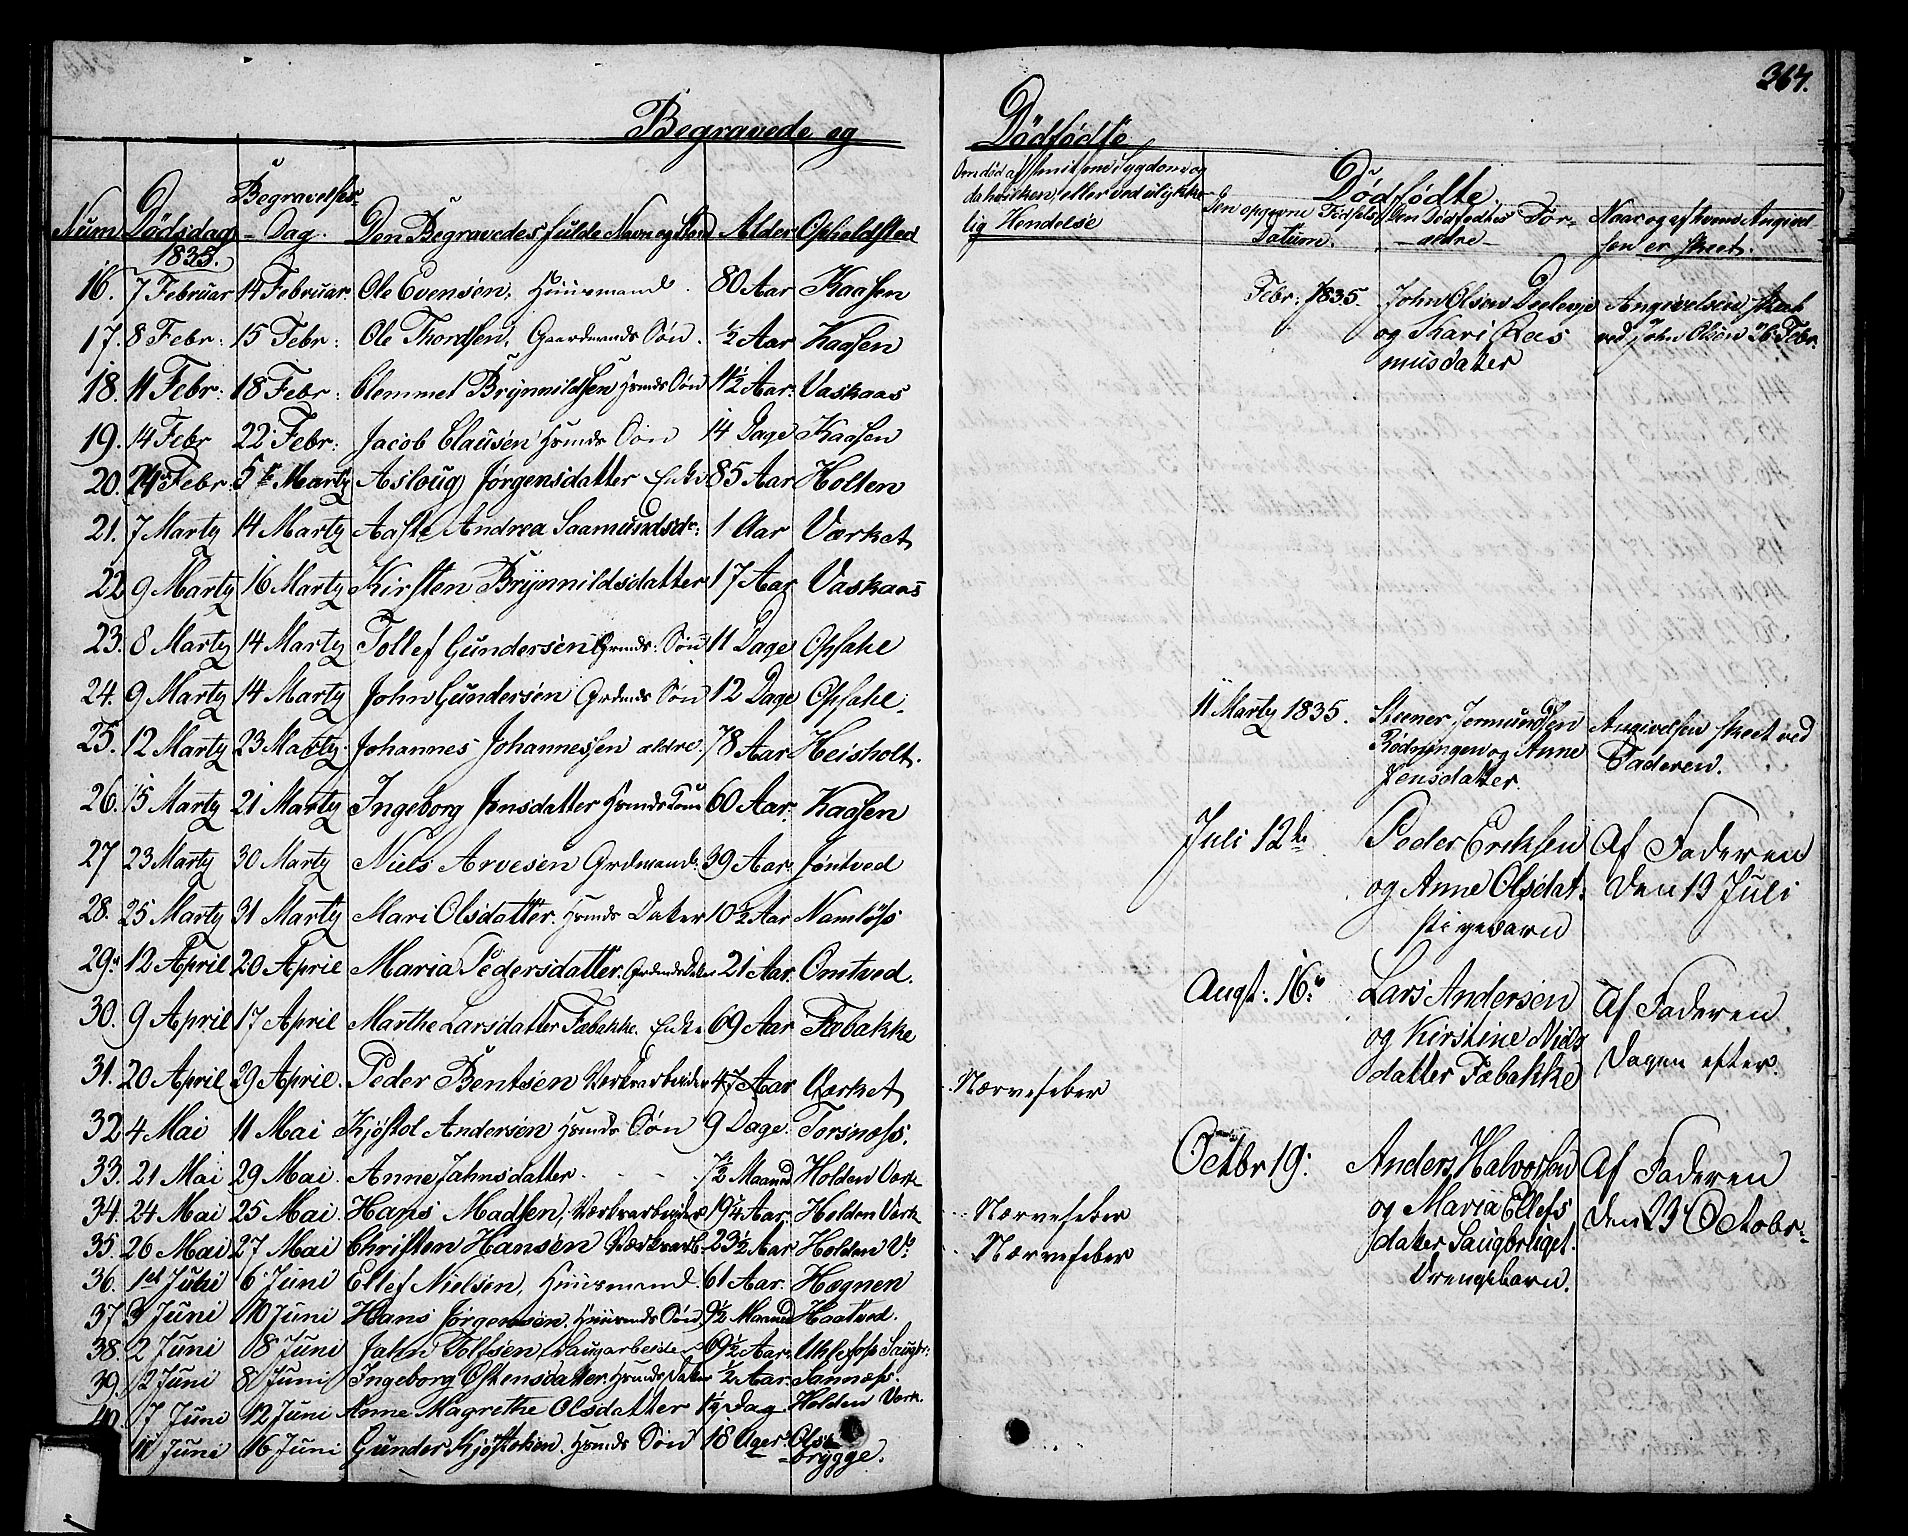 367.
Begravede og Dødfødte
Num Dødsdag Begravelses- Dag. Den Begravedes fulde Navn og Stand Alder Opholdsted
1835.
16. 7 Februar 14 Februar. Ole Evensen, Huusmand. 80 Aar Kaasen
17. 8 Febr: 15 Febr: Ole Thordsen, Gaardmands Søn. ½ Aar Kaasen
18. 11 Febr: 18 Febr: Clemmet Brynnildsen Hmds Søn 11½ Aar. Vaskaas
19. 14 Febr 22 Febr: Jacob Clausen Hmnds Søn 14 Dage Kaasen
20. Febr. 5te Marty Asloug Jørgensdatter Enke 85 Aar Holten
21. 7 Marty 14 Marty Aaste Andrea Saamundsdr: 1 Aar Værket
22 9 Marty 16 Marty Kirsten Brynnildsdatter 17 Aar Vaskaas
23. 8 Marty 14 Marty Tollef Gundersen Grmds: Søn 11 Dage Opsahl
24. 9 Marty 14 Marty John Gundersen Grdmds Søn 12 Dage Opsahl.
25. 12 Marty 23 Marty. Johannes Johannessen ældre. 78 Aar Heisholt.
26. 15 Marty 21 Marty Ingeborg Jensdatter Hmnds Kone 60 Aar. Kaasen
27 23 Marty 30 Marty Niels Arvesen Grdmand. 39 Aar. Jøntved
28. 25 Marty 31 Marty Mari Olsdatter. Hmnds Datter 10½ Aar Namløss
29. 12 April 20 April Maria Pedersdatter. Grdmds Datter 21 Aar. Omtved.
30. 9 April 17 April Marthe Larsdatter Fæbakke. Enke 69 Aar Fæbakke
31. 20 April 29 April. Peder Bentsen Verkvarbeider 47 Aar Værket
32 4 Mai 11 Mai Kjøstol Andersen Hmnds Søn 9 Dage. Torsnæss.
33. 21 Mai 29 Mai. Anne Jahnsdatter. 7½ Maaned Holden Værk
34. 24 Mai 25 Mai. Hans Madsen, Værkvarbeider 19¼ Aar. Holden Værk
35. 26 Mai 27 Mai Christen Hansen Værkvarb. 23½ Aar Holden V.
36. 1st Juni 6 Juni Ellef Nielsen, Huusmand. 61 Aar. Hægnen
37 3 Juni 10 Juni Hans Jørgensen. Huusmds Søn 9½ Maaned Haatved.
38. 2 Juni 8 Juni Jahn Tolfsen Saugarbeider 69½ Aar. Ulefoss Saugbr:
39. 2 Juni 8 Juni Ingeborg Østensdatter. Hmnds Datter ½ Aar. Sannæss.
40. 7 Juni 12 Juni Anne Magrethe Olsdatter 1½ Dag Holden Værk.
11 Juni 16 Juni Gunder Kjøstolsen. Hmnds Søn 18 Uger. Ols brygge.
Om død af Smitsom Sygdom og
da hvilken, eller ved ulykke-
lig Hendelse
Nærvefeber
Nærvefeber
Nærvefeber
Dødfødte,
Den opgevne Fødsels Datum. Den Dødfødtes For- ældre Naar og af hvem Angivel sen er skeet.
Febr: 1835. John Olson og Kari Ras musdatter
Angivelsen skeet ved John Olsen 26 Febr.
11 Marty 1835. Steener Jermundsen Rødningen og Anne Jensdatter.
Angivelsen skeet ved Faderen.
Juli 12te Peder Eriksen og Anne Olsdat. Pigebarn
Af Faderen Den 19 Juli
Augt: 16. Lars Andersen og Kirstine Niels datter Fæbakke
Af Faderen Dagen efter.
Octbr 19: Anders Halvorsen og Maria Ellefs datter Saugbruget. Drengebarn.
Af Faderen Den 23 Octobr.